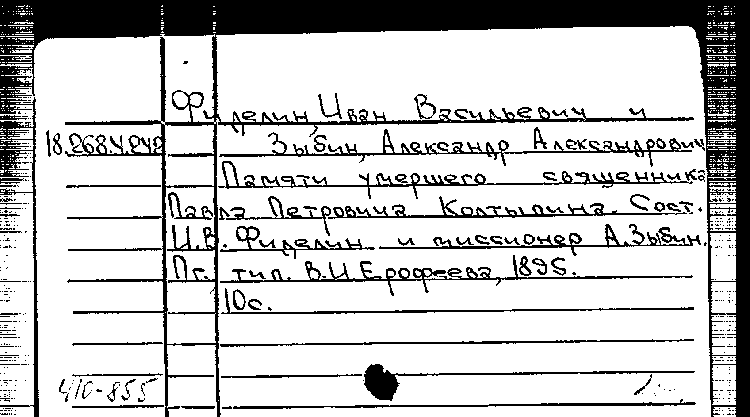 Фиделин, Иван Васильевич и
18.268.4.242 Зыбин, Александр Александрович
Памяти умершего священника
Павла Петровича Колтыпина. Сост.
И.В. Фиделин и миссионер А. Зыбин.
Пг. тип. В.И. Ерофеева, 1895.
10с.
4/10-855